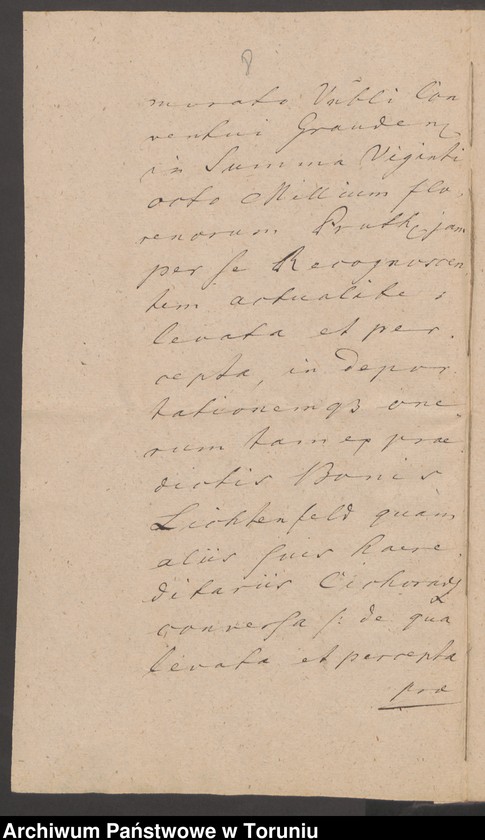 8
morato Vnbli Con
ventui Grauden
in Summa Viginti
octo Millium flo,
renorum Pruth jam
per se Recognoscen
tem actualite:
levata et per.
cepta, in depor
tationemq3 one,
rum tam ex præ
dictis Bonis
Lichtenfeld quam
aliis suis hære.
ditariis Cichoradz
conversa /: de qua
levata et percepta
præ
Archiwum Państwowe w Toruniu